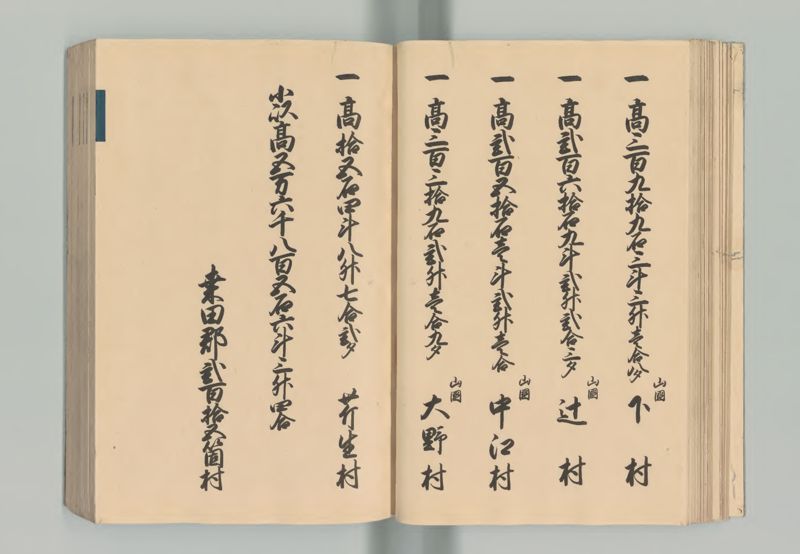 一 高三百九拾九石三斗三升壱合八夕 山國 下村
一 高弐百六拾石九斗弐升弐合三夕 山國 辻村
一 高弐百五拾石壱斗弐升壱合 山國 中江村
一 高三百三拾九石弐升壱合九夕 山國 大野村
一 高拾五石四斗八升七合弐夕 芹生村
小以高五万六千八百五石六斗三升四合
桑田郡弐百拾五箇村